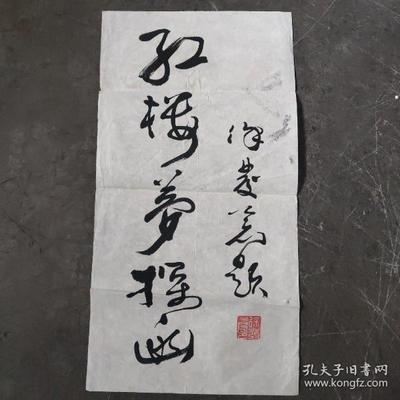 红楼夢探幽
徐 题
孔夫子旧书网
www.kongfz.com